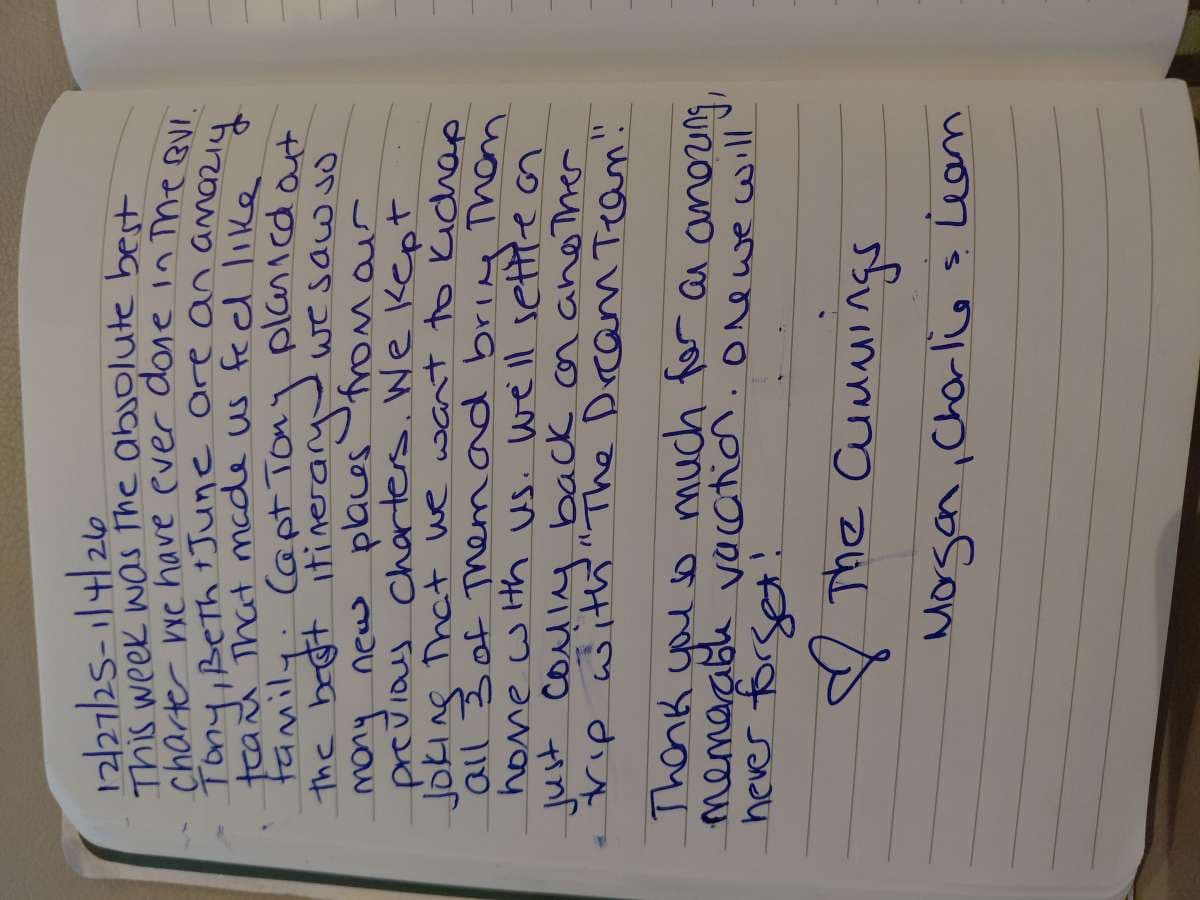 12/27/25-1/4/26
This week was the absolute best
charter we have ever done in the BVI.
Tony, Beth + June are an amazing
team that made us feel like
family. Capt Tony planned out
the best itinerary, we saw so
many new places from our
previous charters. We kept
joking that we want to kidnap
all 3 of them and bring them
home with us. We'll settle on
just coming back on another
trip with "The Dream Team".
Thank you so much for an amazing,
memorable vacation. One we will
never forget!
♡ The Cummings
Morgan, Charlie & Liam